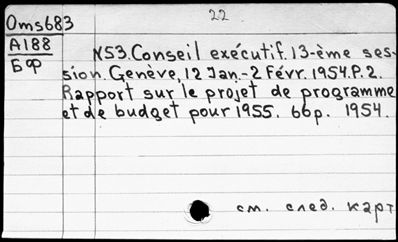 22
Oms683
A188
БФ
N53. Conseil exécutif. 13-ème ses-
sion. Genève, 12 Jan.-2 Févr. 1954. P.2.
Rapport sur le projet de programme
et de budget pour 1955. 66p. 1954.
см. след. карт